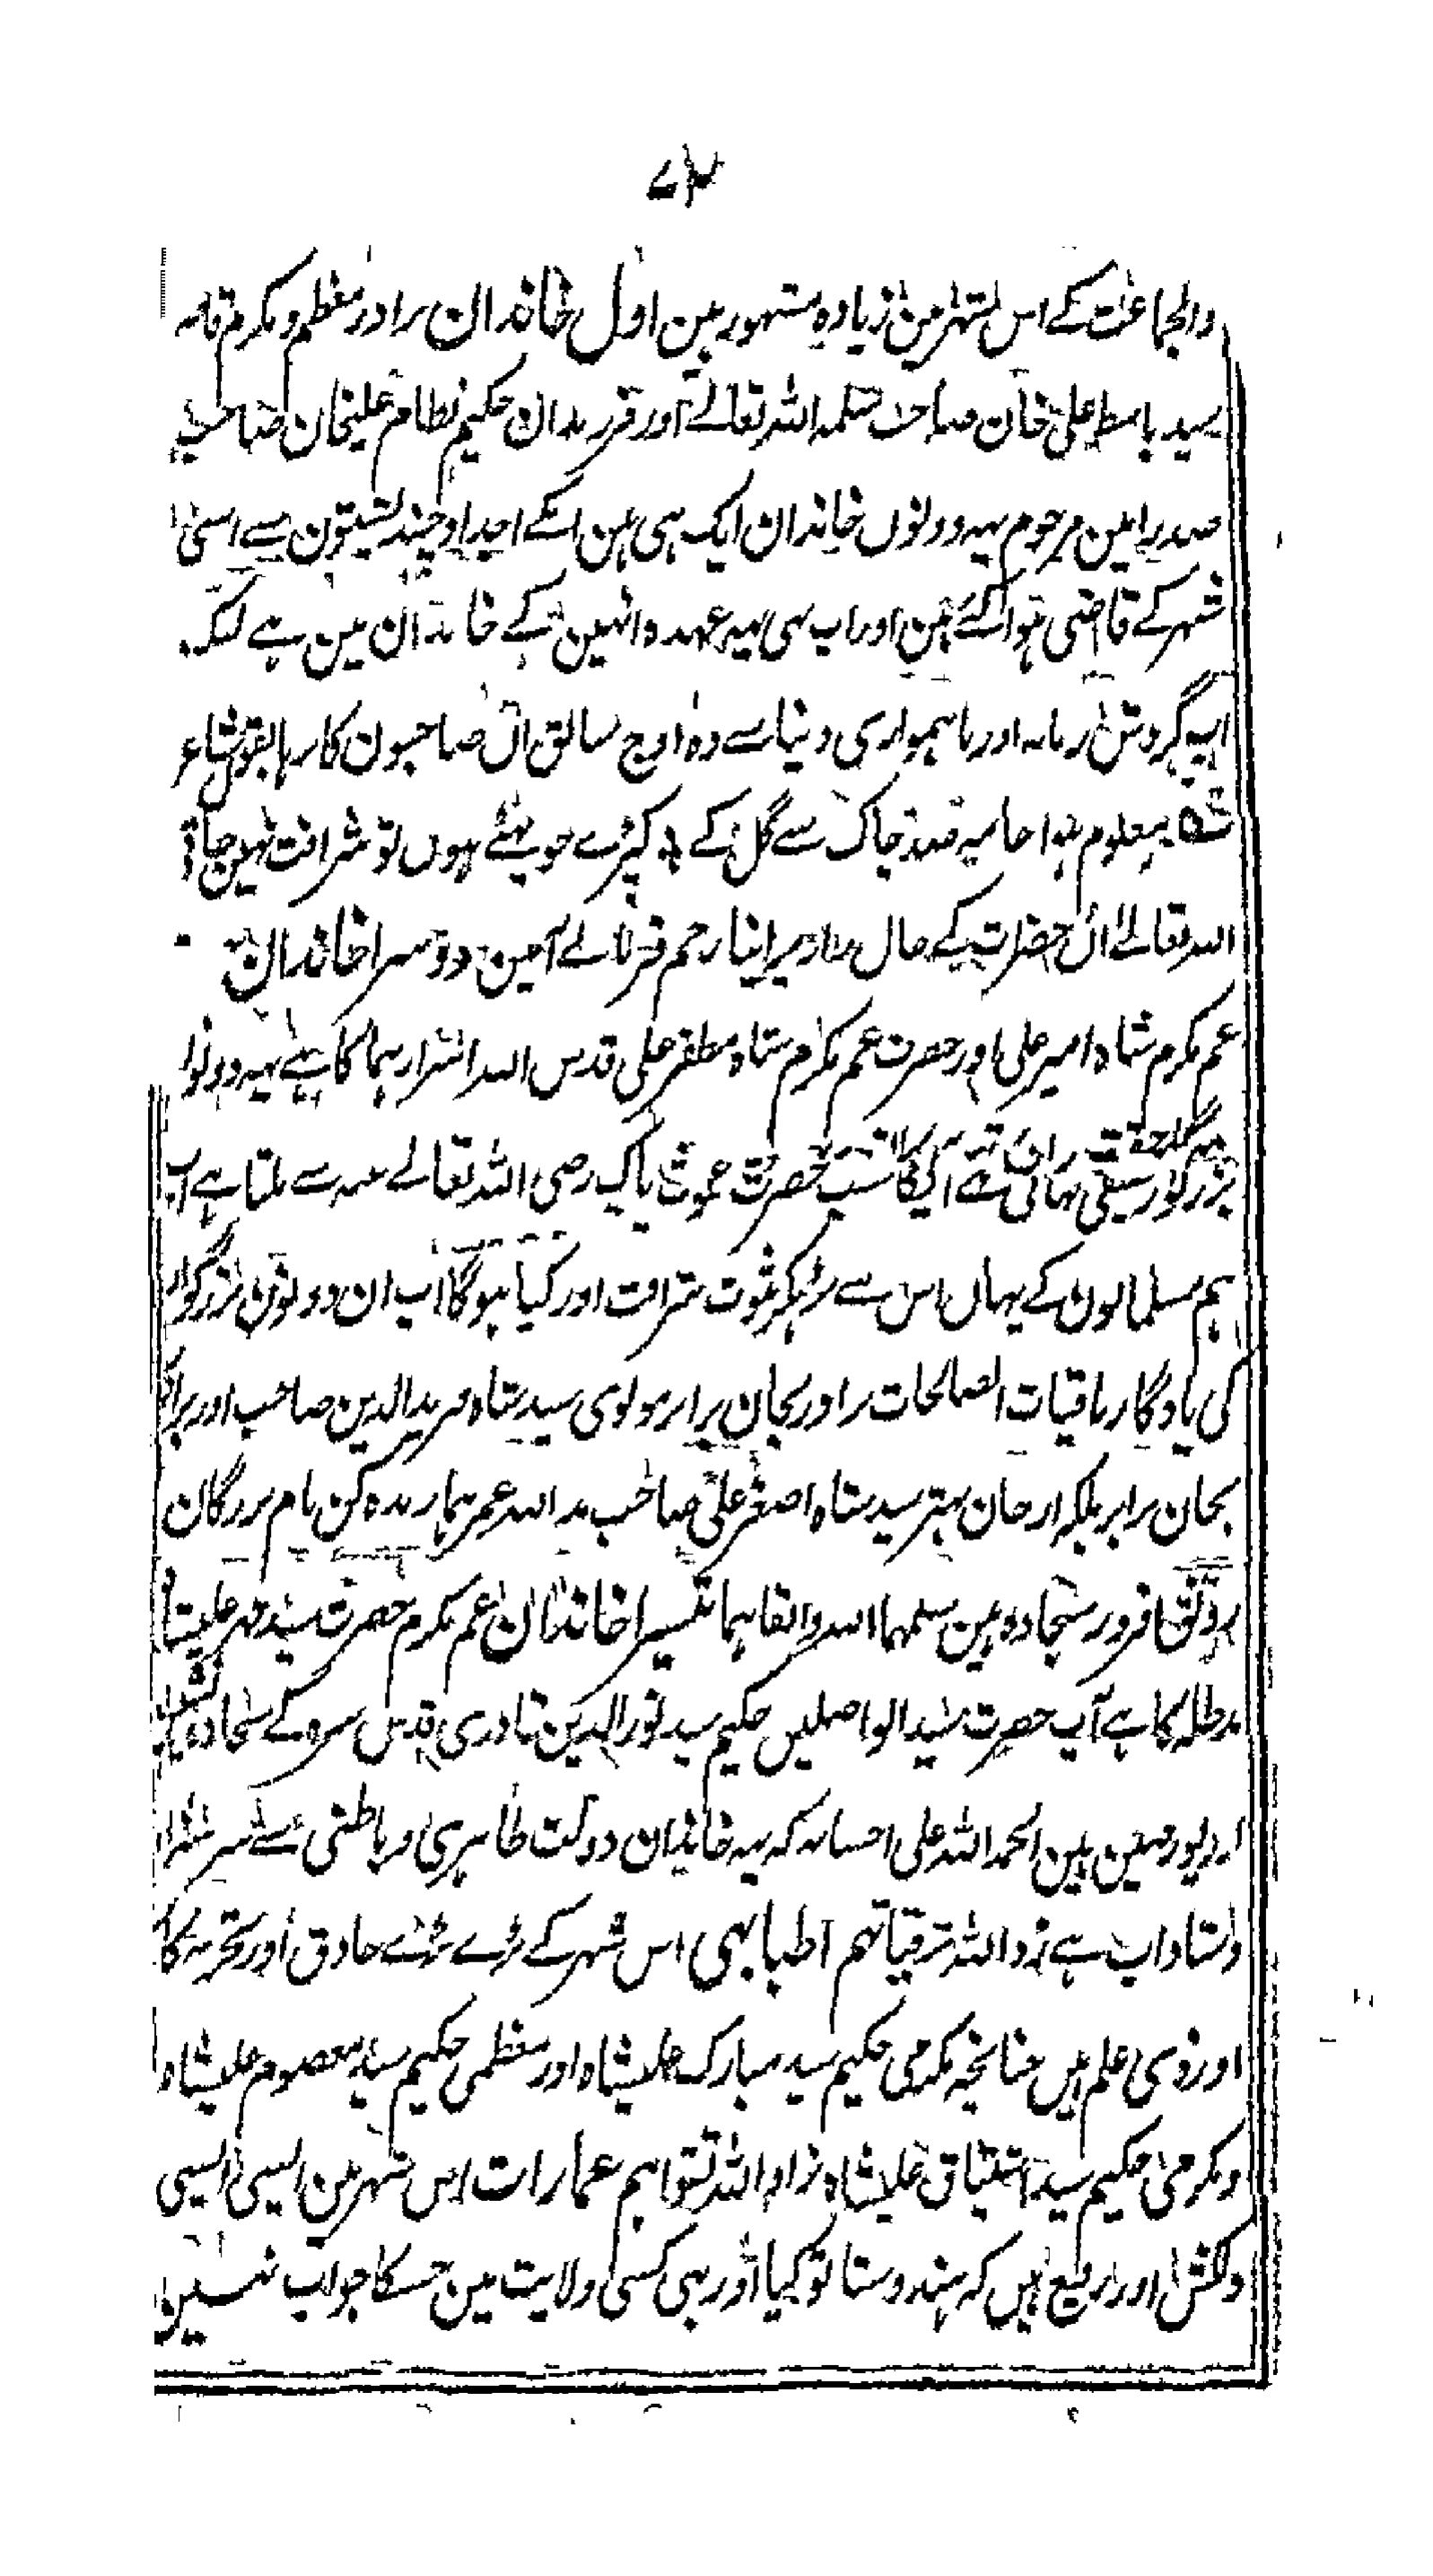 ۷۴
والجماعت کے اس شہر مین زیادہ مشہور ہین اول خاندان برادر معظم و مکرم
سید باسط علی خان صاحب سلمہ اللہ تعالے اور فرزندان حکیم نظام علیخان صاحب
صدر امین مرحوم یہہ دونوں خاندان ایک ہی ہین انکے اجداد چند پشتون سے اسی
شہر کے قاضی ہوا کئے ہین اور اب بھی یہہ عہدہ انہین کے خاندان مین ہے
اب گردش زمانہ اور ناہمواری دنیا سے وہ اوج سابق ان صاحبون کا رہا بقول شاعر
معلوم ہوا جامہ صد چاک سے گل کے ؛ کپڑے جو پھٹے ہوں تو شرافت نہین جاتی
اللہ تعالے ان حضرات کے حال پر اپنا رحم فرمائے آمین دوسرا خاندان
عم مکرم شاہ امیر علی اور حضرت عم مکرم شاہ مظفر علی قدس اللہ اسرارہما کا ہے یہہ دونوں
بزرگوار حقیقی بھائی تھے ان کا نسب حضرت غوث پاک رضی اللہ تعالے عنہ سے ملتا ہے اب
ہم مسلمانون کے یہاں اس سے بڑہکر ثبوت شرافت اور کیا ہوگا اب ان دونون بزرگوار
کی یادگار باقیات الصالحات برادر بجان برابر مولوی سید شاہ فرید الدین صاحب اور برادر
بجان برابر بلکہ از جان بہتر سید شاہ اصغر علی صاحب مد اللہ عمرہما زندہ کن نام بزرگان
رونق افروز سجادہ ہین سلمہما اللہ وابقاہما تیسرا خاندان عم مکرم حضرت سید مہر علیشاہ
مدظلہ کا ہے آپ حضرت سید الواصلین حکیم سید نور الدین قادری قدس سرہ کے سجادہ نشین
ہین الحمد للہ علی احسانہ کہ یہہ خاندان دولت ظاہری و باطنی سے سرسبز
و شاداب ہے زد اللہ ترقیاتہم اطبا بھی اس شہر کے بڑے بڑے حاذق اور تجربہ کار
اور ذی علم ہیں چنانچہ مکرمی حکیم سید مبارک علیشاہ اور معظمی حکیم سید معصوم علیشاہ
و مکرمی حکیم سید اشتیاق علیشاہ زاد اللہ عمارات اس شہر مین ایسی ایسی
دلکش اور رفیع ہیں کہ ہندوستا تو کیا اور بھی کسی ولایت مین جسکا جواب نہین